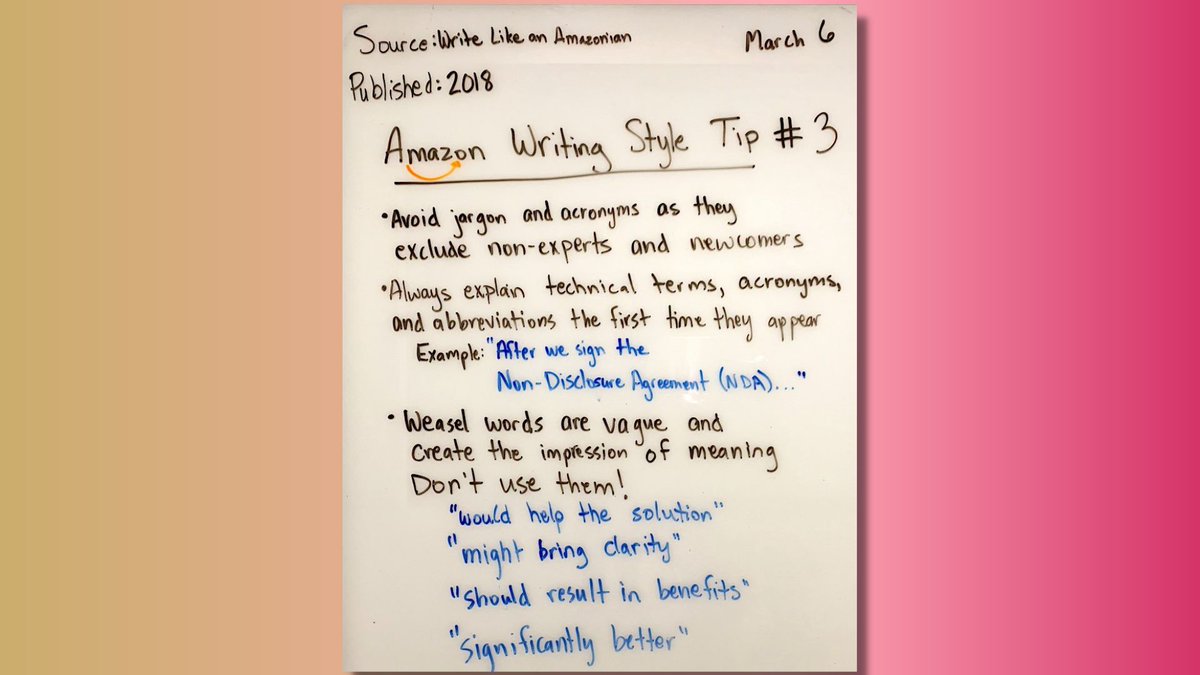 Source: Write Like an Amazonian
March 6
Published: 2018
Amazon Writing Style Tip # 3
• Avoid jargon and acronyms as they
exclude non-experts and newcomers
• Always explain technical terms, acronyms,
and abbreviations the first time they appear
Example: "After we sign the
Non-Disclosure Agreement (NDA)..."
• Weasel words are vague and
create the impression of meaning
Don't use them!
"would help the solution"
"might bring clarity"
"should result in benefits"
"significantly better"